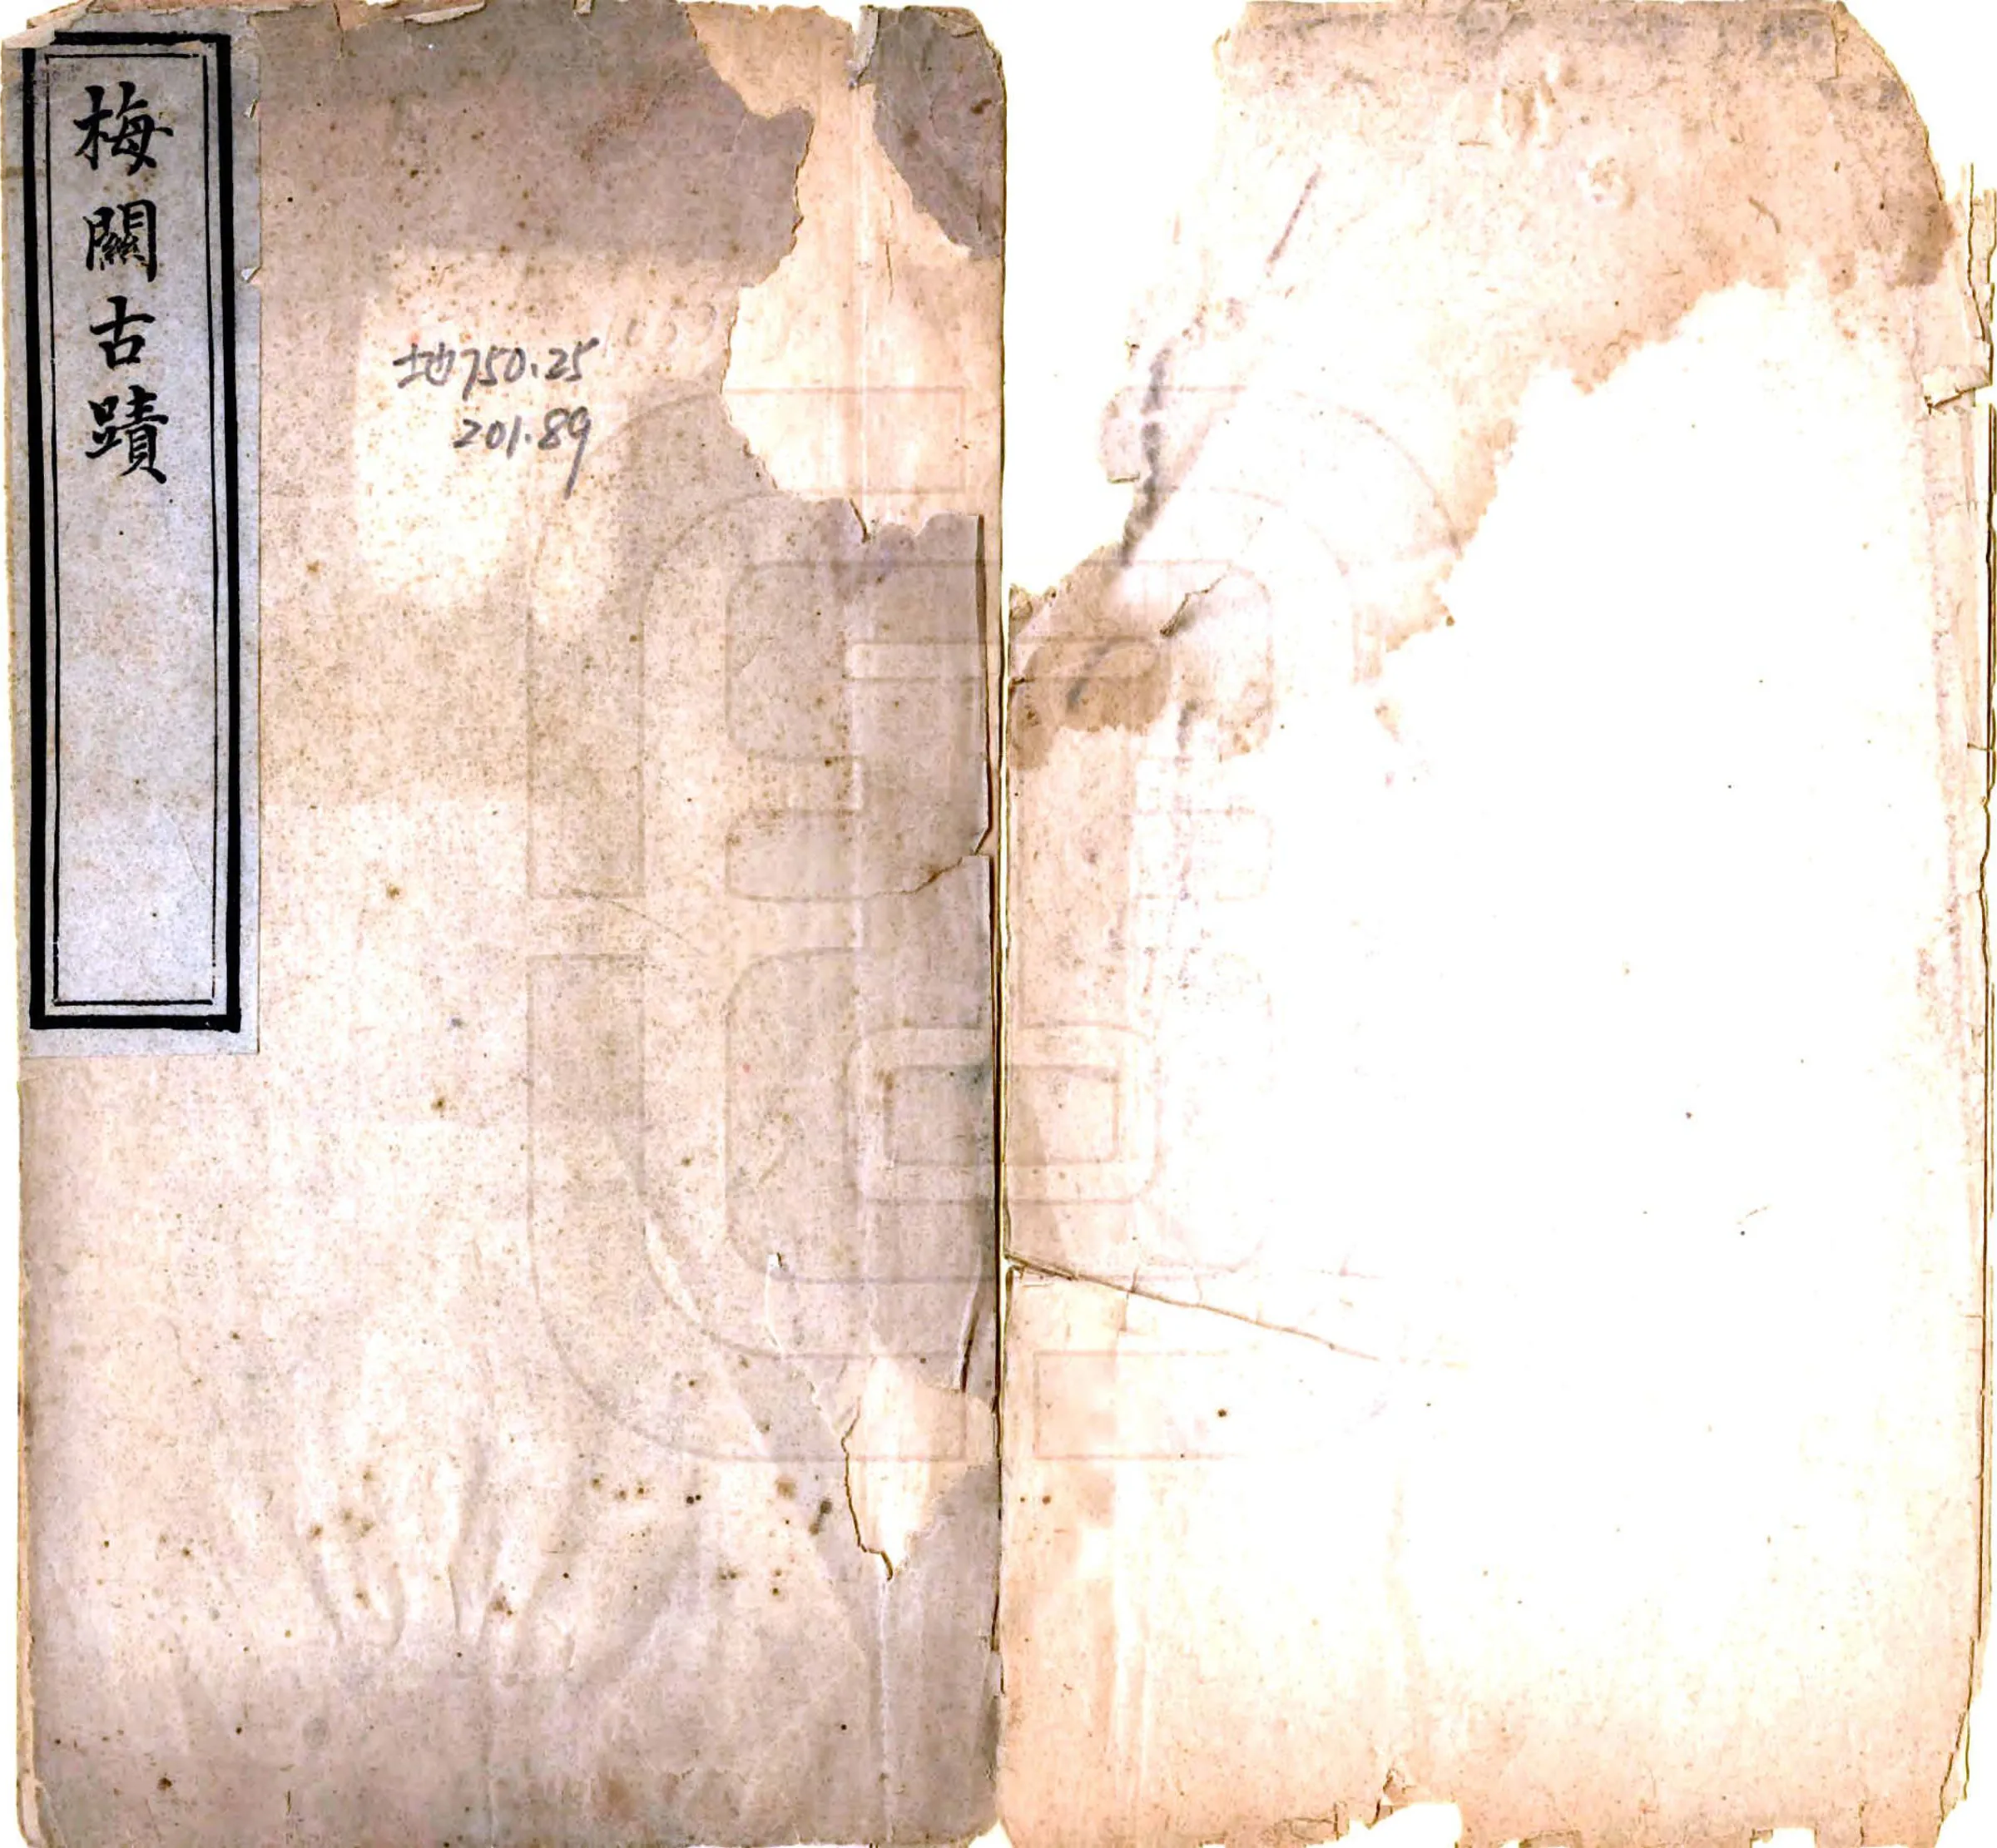 梅關古蹟
地750.25
201.89